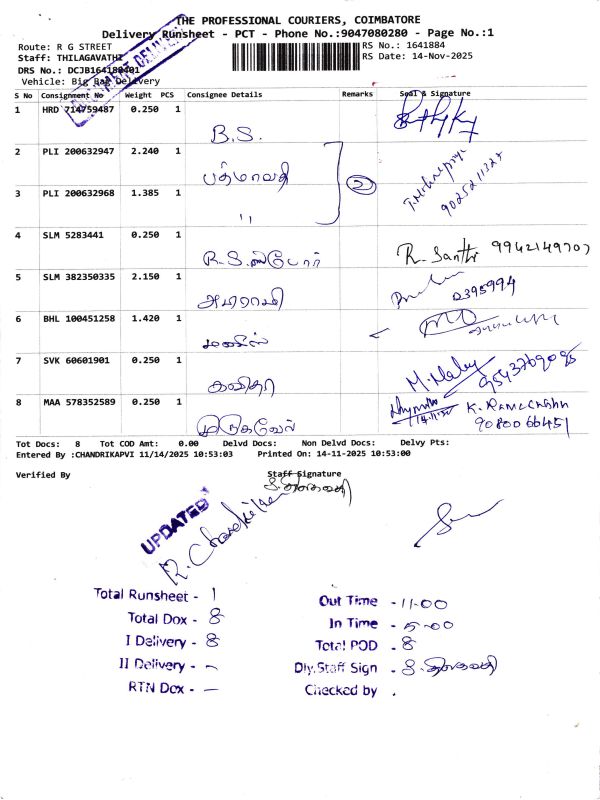 THE PROFESSIONAL COURIERS, COIMBATORE
Delivery Runsheet - PCT - Phone No.:9047080280 - Page No.:1
Route: R G STREET
RS No.: 1641884
Staff: THILAGAVATHI
RS Date: 14-Nov-2025
DRS No.: DCJB164188401
Vehicle: Big Bag Delivery
S No Consignment No Weight PCS Consignee Details Remarks Seal & Signature
1 HRD 714759487 0.250 1
B.S.
2 PLI 200632947 2.240 1
பத்மாவதி
2
9025211327
3 PLI 200632968 1.385 1
"
4 SLM 5283441 0.250 1
R.S. ஸ்போர்
R. Santhi 9942149707
5 SLM 382350335 2.150 1
அபிராமி
6 BHL 100451258 1.420 1
7 SVK 60601901 0.250 1
கவிதா
8 MAA 578352589 0.250 1
முருகவேல்
K. RAMACHANDRAN
9080066451
Tot Docs: 8 Tot COD Amt: 0.00 Delvd Docs: Non Delvd Docs: Delvy Pts:
Entered By :CHANDRIKAPVI 11/14/2025 10:53:03 Printed On: 14-11-2025 10:53:00
Verified By
Staff Signature
UPDATED
Total Runsheet - 1
Total Dox - 8
I Delivery - 8
II Delivery - -
RTN Dox - -
Out Time - 11-00
In Time - 5-00
Total POD - 8
Dly.Staff Sign -
Checked by .